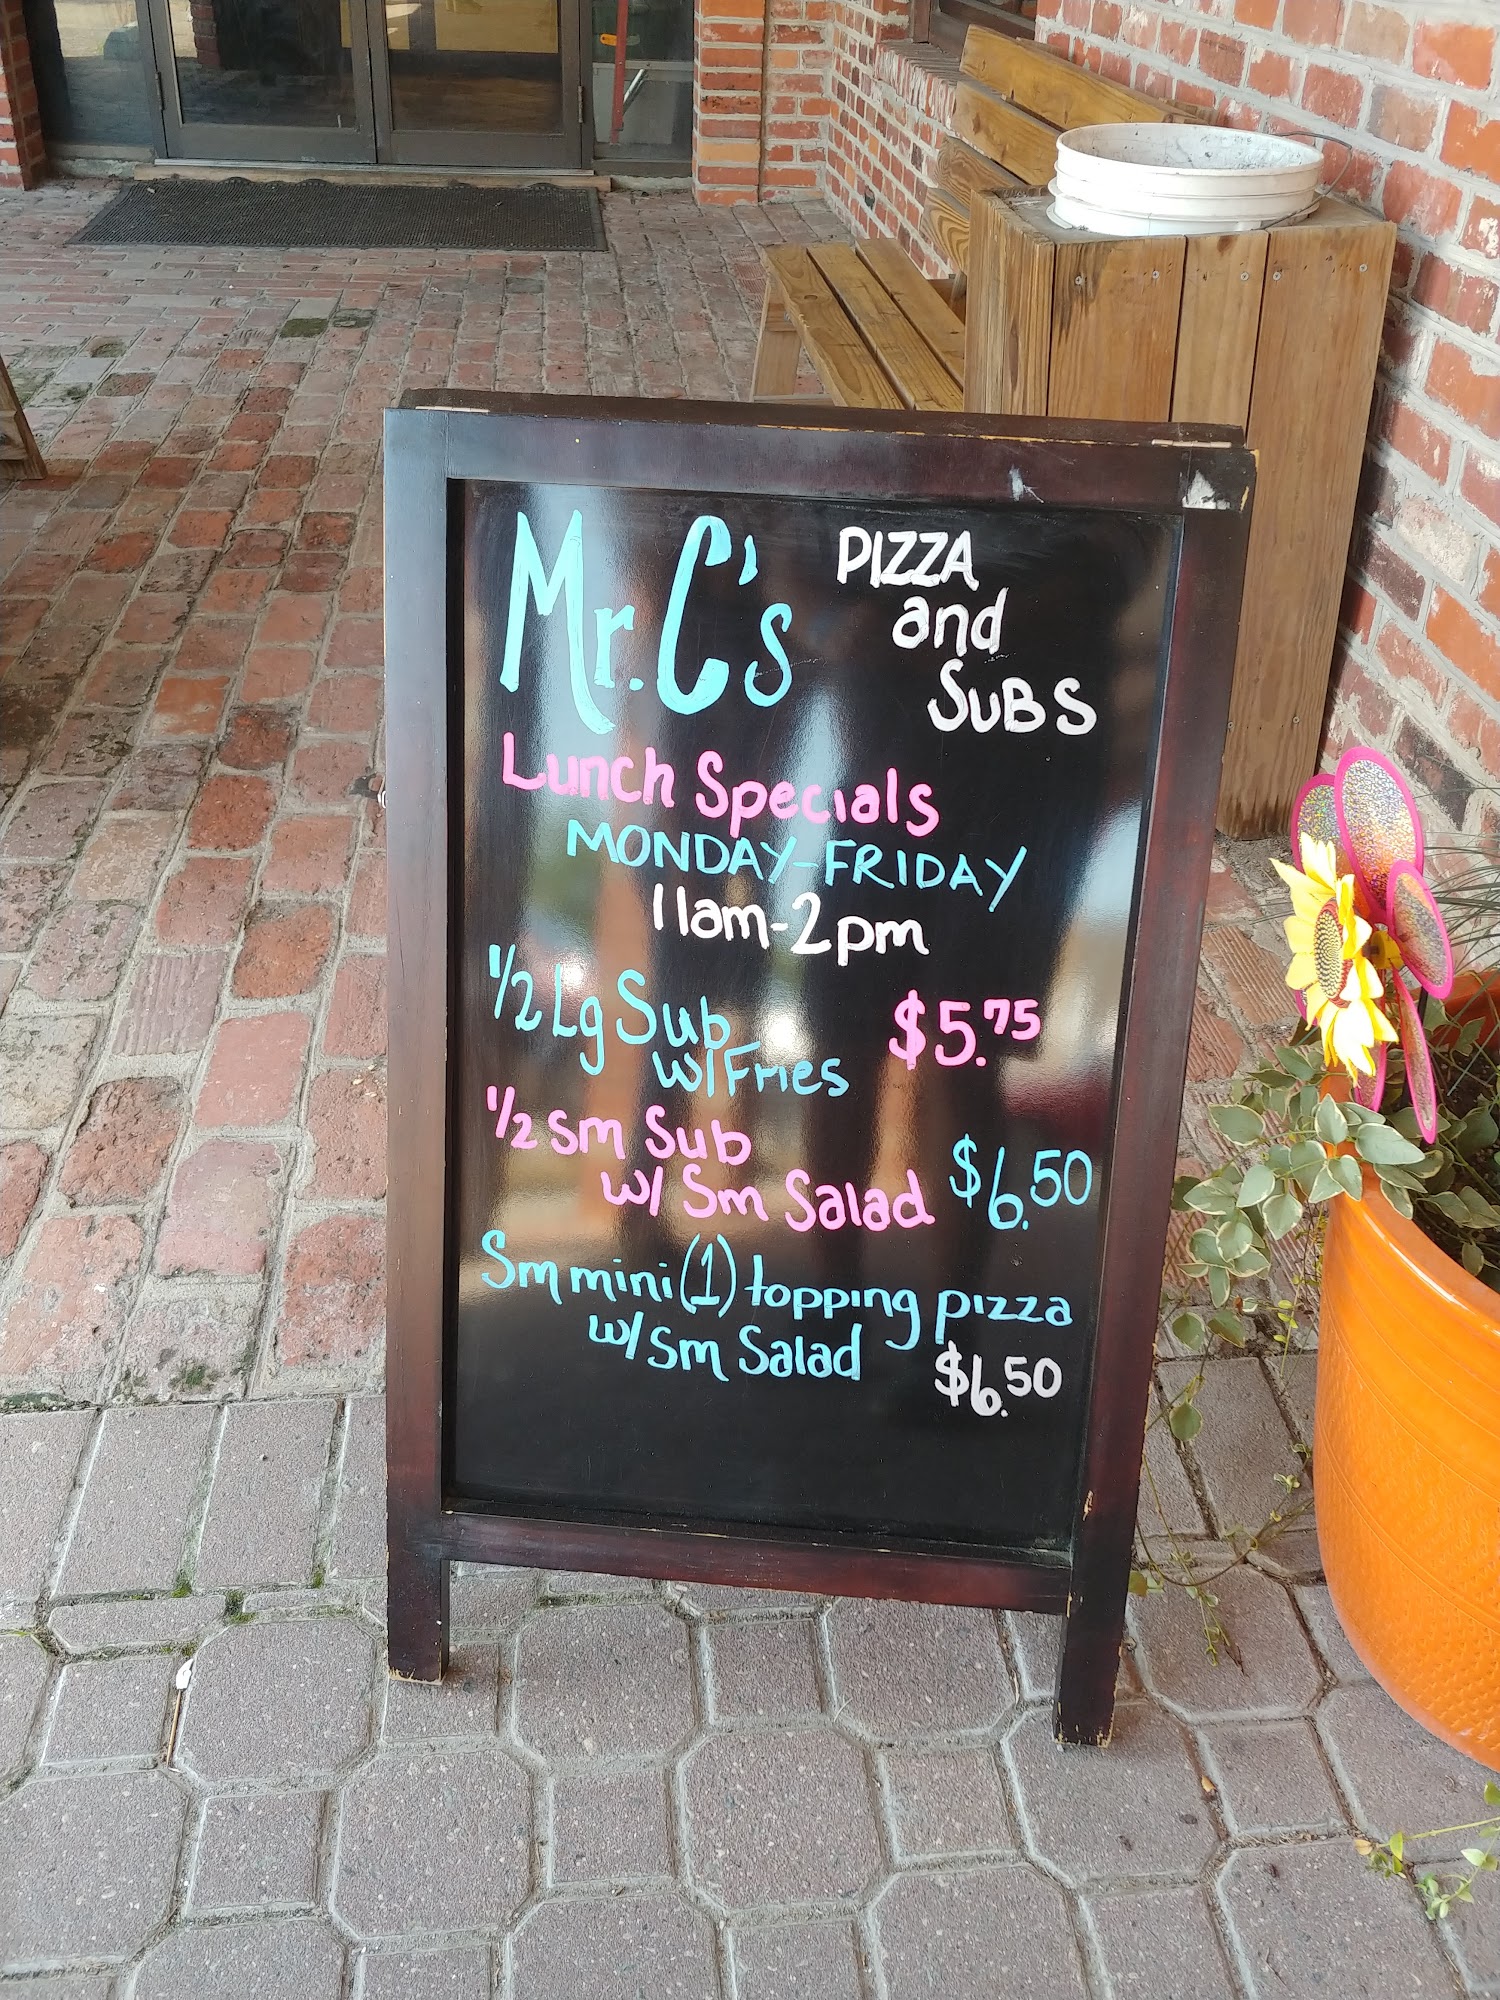 Mr. C's PIZZA
and
SUBS
Lunch Specials
MONDAY-FRIDAY
11am-2pm
1/2 Lg Sub $5.75
w/Fries
1/2 sm Sub
w/ Sm Salad $6.50
Sm mini (1) topping pizza
w/ sm Salad $6.50